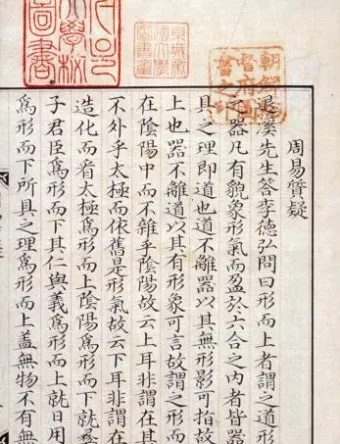 大學校
圖書
朝鮮總
督府圖
書之印
周易質疑
退溪先生答李德弘問曰形而上者謂之道
之器凡有貌象形氣而盈於六合之內者皆器
具之理即道也道不離器以其無形影可指故
上也器不離道以其有形象可言故謂之形而
在陰陽中而不雜乎陰陽故云上耳非謂在其
不外乎太極而依舊是形氣故云下耳非謂在
造化而看太極爲形而上陰陽爲形而下就彝
子君臣爲形而下其仁與義爲形而上就日用
爲形而下所具之理爲形而上盖無物不有無